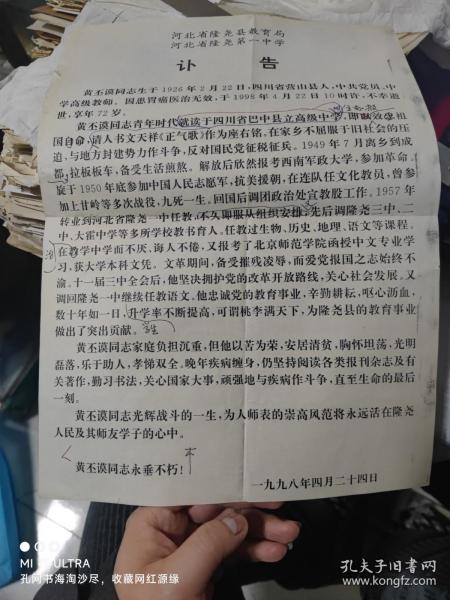 河北省隆尧县教育局
河北省隆尧第一中学
讣告
黄丕谟同志生于1926年2月22日,四川省营山县人,中共党员,中
学高级教师。因患胃癌医治无效,于1998年4月22日10时许,不幸逝
世,享年72岁。
黄丕谟同志青年时代就读于四川省巴中县立高级中学,即以效忠祖
国自命,请人书文天祥《正气歌》作为座右铭。在家乡不屈服于旧社会的压
迫,与地方封建势力作斗争,反对国民党征税征兵。1949年7月离乡到成
都,拉板板车,备受生活煎熬。解放后欣然报考西南军政大学,参加革命。
旋于1950年底参加中国人民志愿军,抗美援朝,在连队任文化教员,曾参
加上甘岭等多次战役,九死一生。回国后调团政治处宣教股工作。1957年
转业到河北省隆尧一中任教,不久即服从组织安排,先后调隆尧三中、二
中、大霍中学等多所学校教书育人。任教过生物、历史、地理、语文等课程。
在教学中学而不厌、诲人不倦,又报考了北京师范学院函授中文专业学
习,获大学本科文凭。文革期间,备受摧残凌辱,而爱党报国之志始终不
渝。十一届三中全会后,他坚决拥护党的改革开放路线,关心社会发展。又
调回隆尧一中继续任教语文。他忠诚党的教育事业,辛勤耕耘,呕心沥血,
数十年如一日,升学率不断提高,可谓桃李满天下,为隆尧县的教育事业
做出了突出贡献。
黄丕谟同志家庭负担沉重,但他以苦为荣,安居清贫,胸怀坦荡,光明
磊落,乐于助人,孝悌双全。晚年疾病缠身,仍坚持阅读各类报刊杂志及有
关著作,勤习书法,关心国家大事,顽强地与疾病作斗争,直至生命的最后
一刻。
黄丕谟同志光辉战斗的一生,为人师表的崇高风范将永远活在隆尧
人民及其师友学子的心中。
黄丕谟同志永垂不朽!
一九九八年四月二十四日
MI 8 ULTRA
孔网书海淘沙尽,收藏网红源缘
孔夫子旧书网
www.kongfz.com